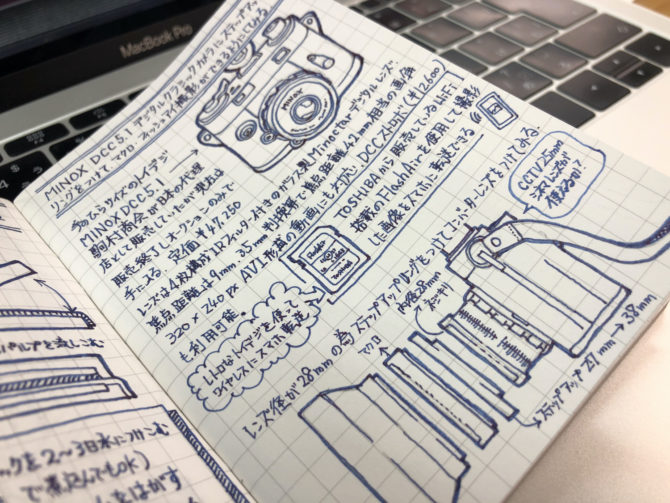 MacBook Pro
MINOX DCC5.1 デジタルクラシックカメラにステップアップ
リングをつけて、マクロ・フィッシュアイ撮影ができるようにしてみる
手のひらサイズのトイデジ
MINOX DCC5.1
駒村商会が日本の代理
店として販売していたが現在は
販売終了しオークションのみで
手に入る 定価 ¥47,250
レンズは4枚構成IRフィルタ付きのガラス製Minoctarデジタルレンズ。
焦点距離は9mm、35mm判換算で焦点距離42mm相当の画角
320×240px AVI形式の動画にも対応 DCCストロボ(¥12,600)
も利用可能
MINOX
TOSHIBAから販売しているWiFi
搭載のFlashAirを使用して撮影
した画像をスマホに転送できる
レトロなトイデジを使って
ワイヤレスでスマホ転送
レンズ径が28mmの為、ステップアップリングをつけてコンバータレンズをつけてみる
CCTV25mm
内径28mm
マクロ
ステップアップ27mm→38mm
クを2〜3日水につけこむ
で煮込んでもOK)
をはがす